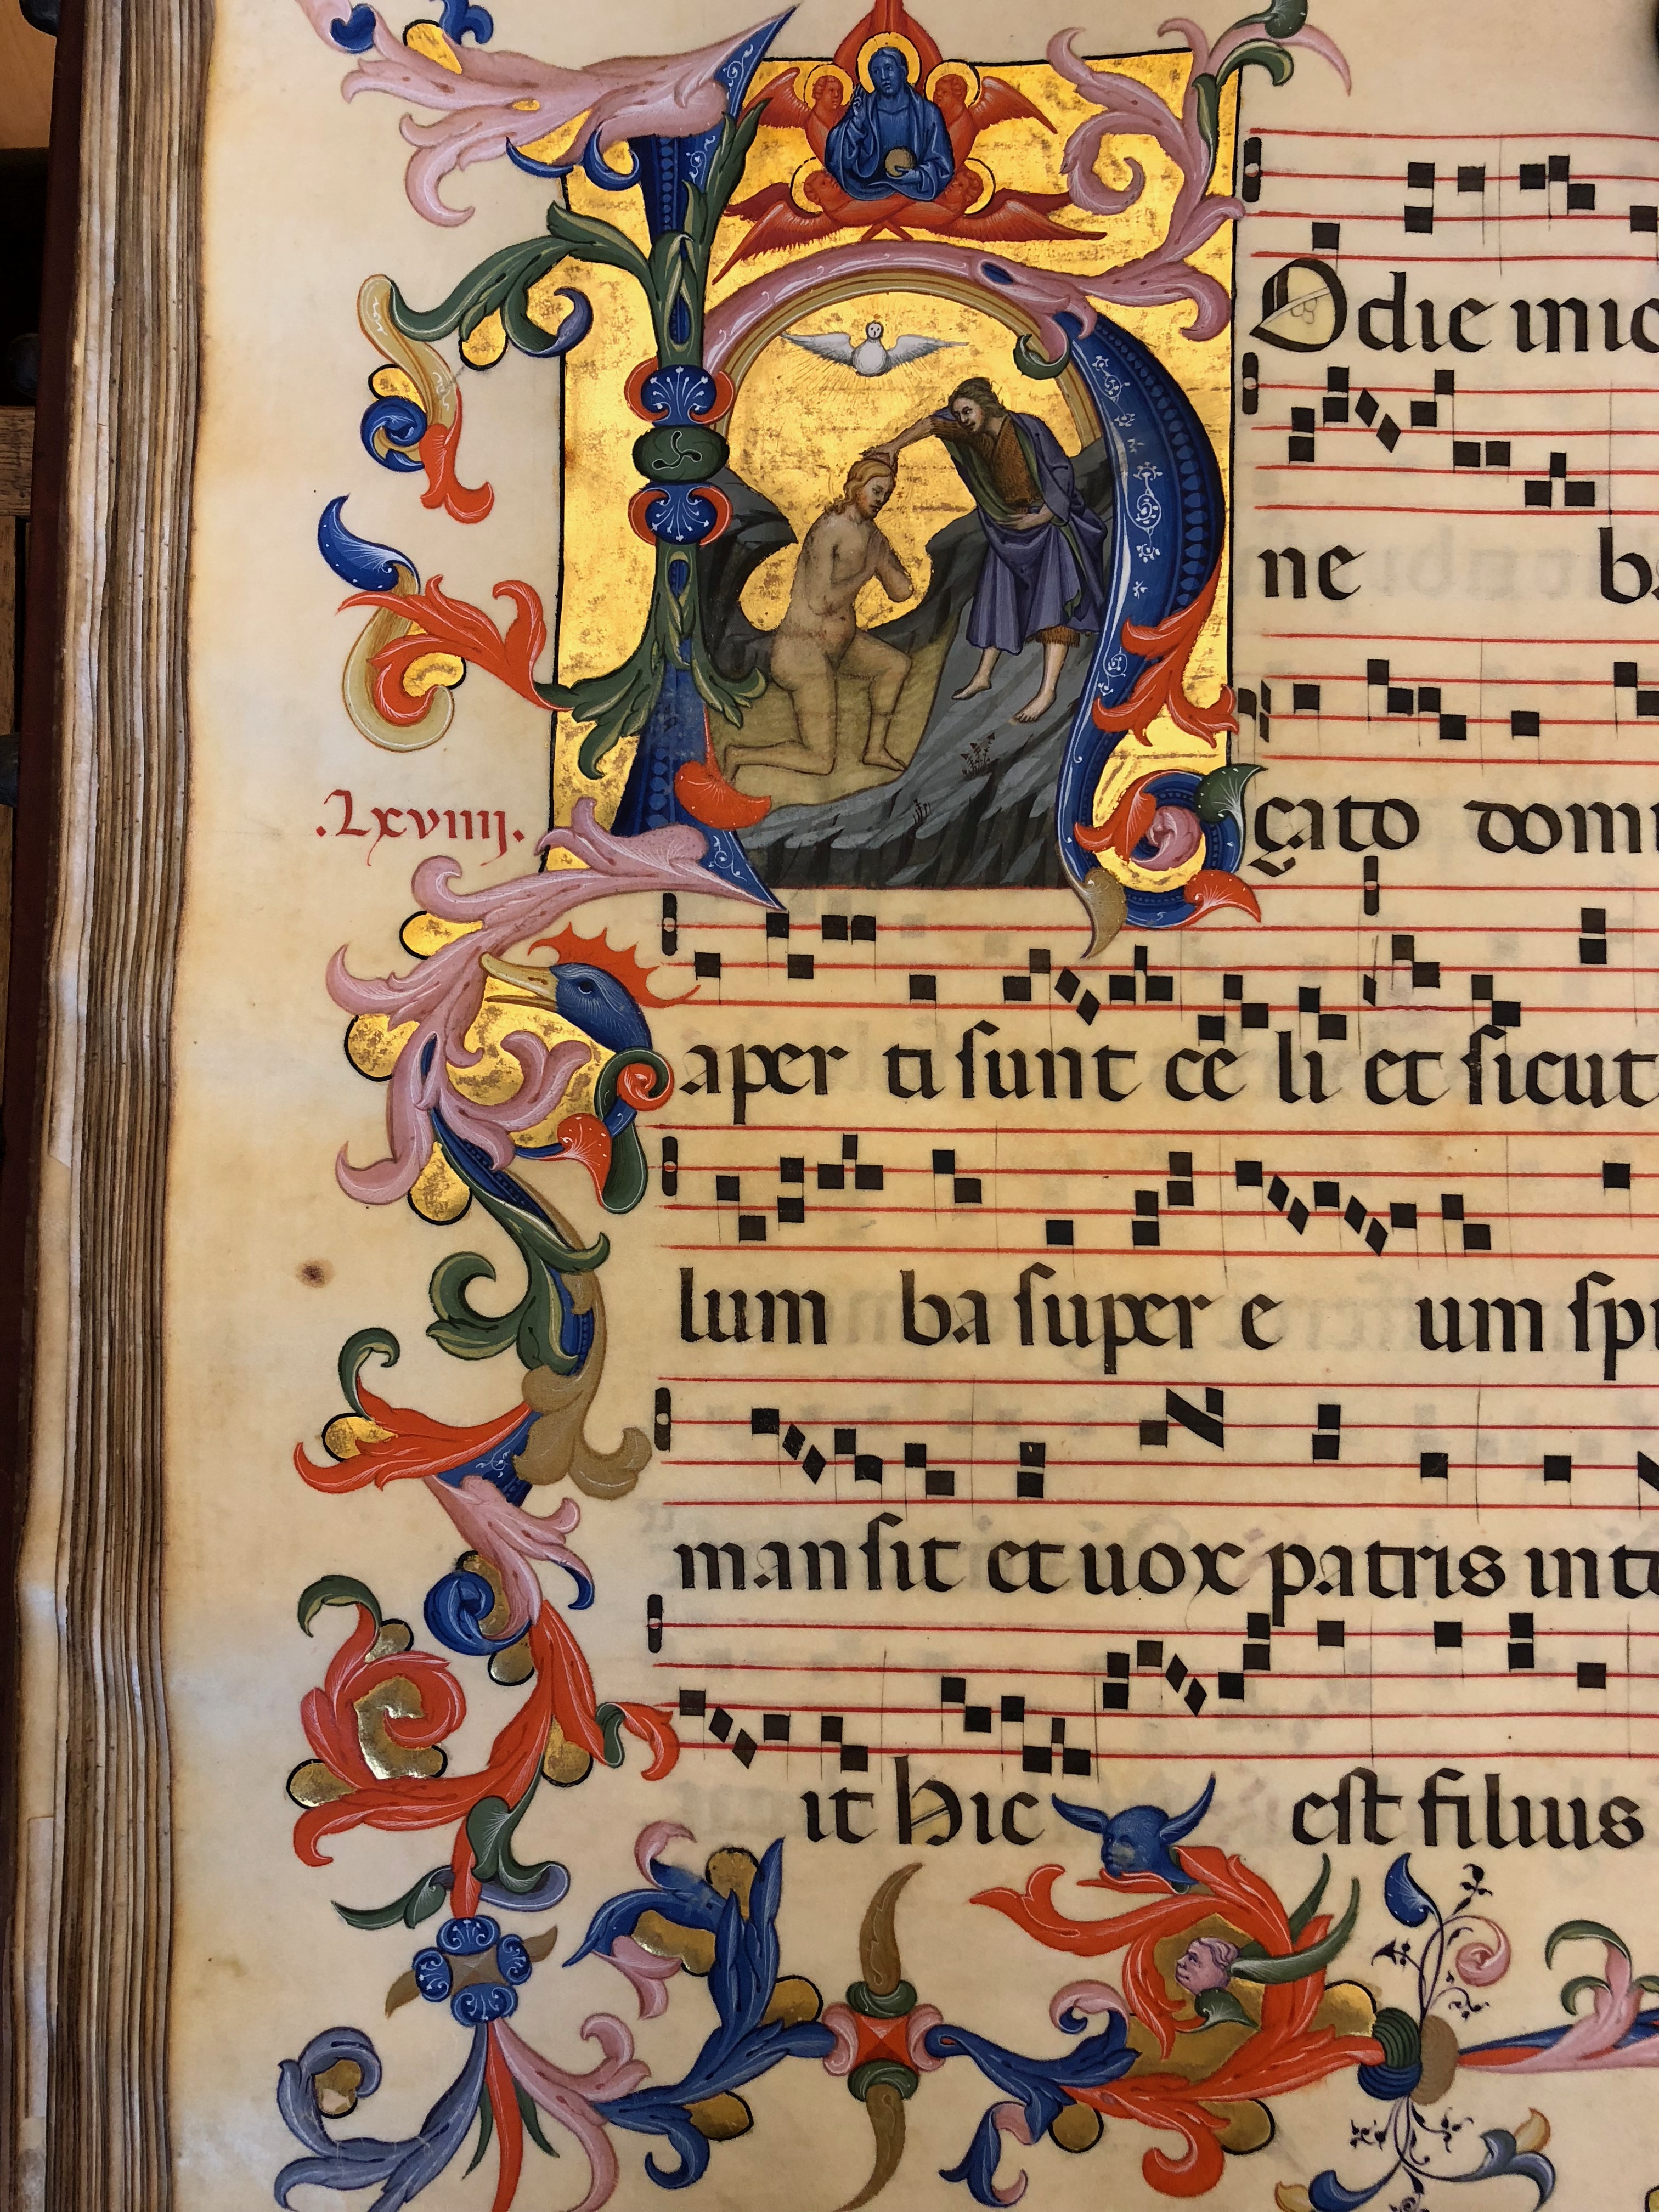 HOdie in io
ne ba
.Lxviiij.
çato domi
aper ti ſunt ce li et ſicut
lum ba ſuper e um ſpi
manſit et uox patris into
it hic eſt filius